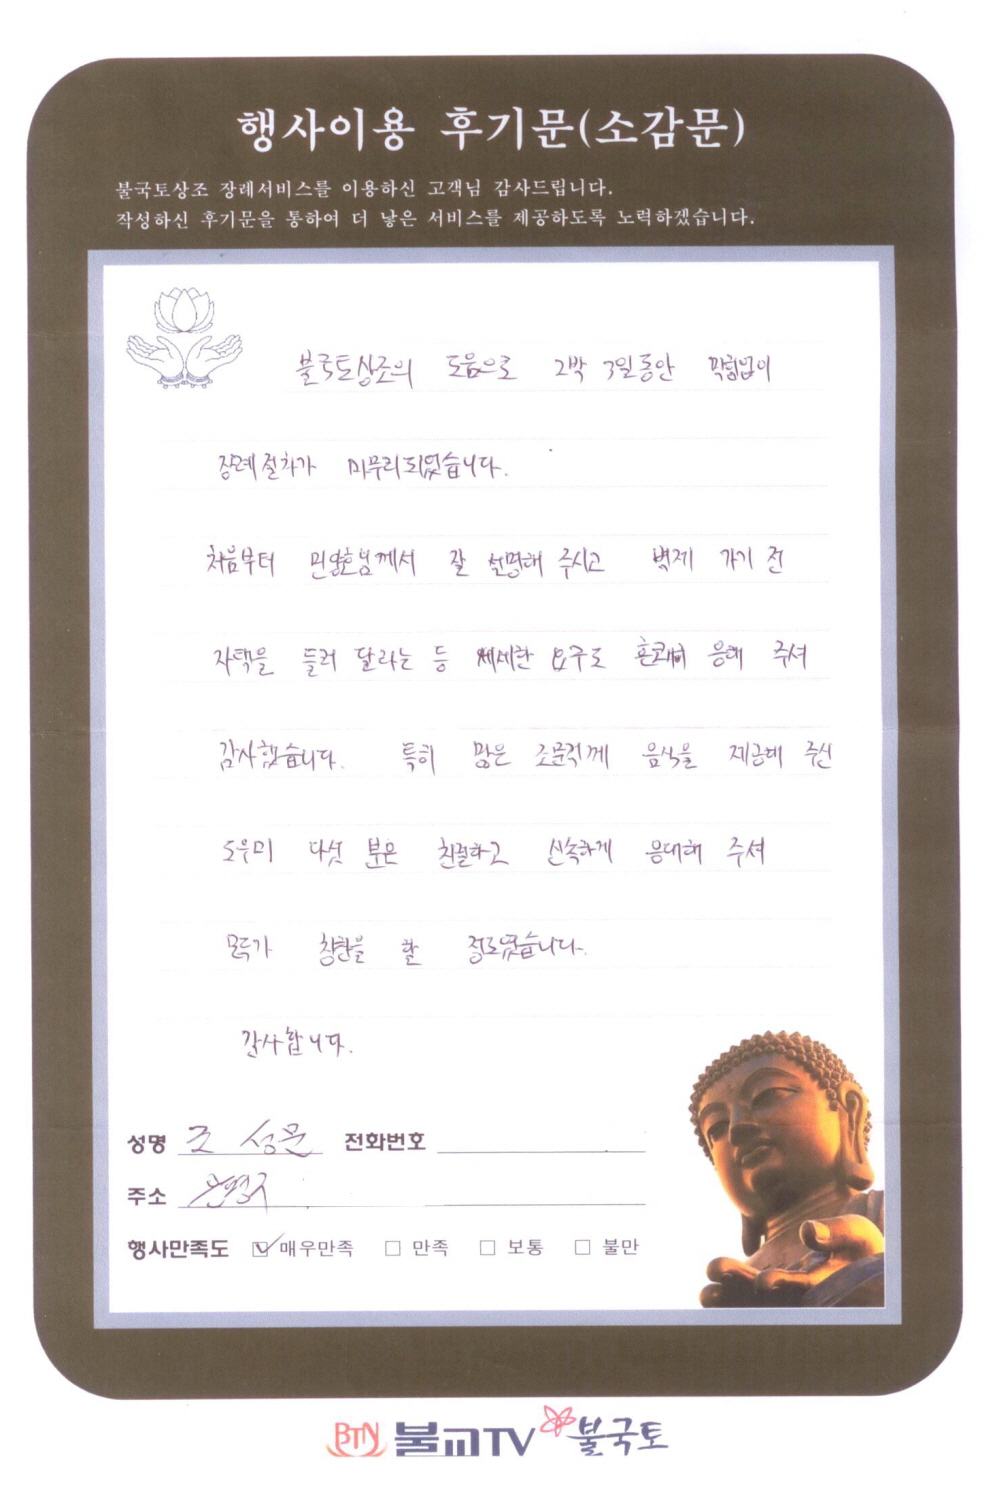 행사이용 후기문(소감문)
불국토상조 장례서비스를 이용하신 고객님 감사드립니다.
작성하신 후기문을 통하여 더 낳은 서비스를 제공하도록 노력하겠습니다.
불국토상조의 도움으로 2박 3일동안 막힘없이
장례절차가 마무리되었습니다.
처음부터 께서 잘 설명해 주시고 벽제 가기 전
자택을 들러 달라는 등 세세한 요구도 흔쾌히 응해 주셔
감사했습니다. 특히 많은 조문객께 음식을 제공해 주신
도우미 다섯 분은 친절하고 신속하게 응대해 주셔
모두가 칭찬을 할 정도였습니다.
감사합니다.
성명 조 성문 전화번호
주소 은평구
행사만족도 매우만족 만족 보통 불만
BTN 불교TV 불국토